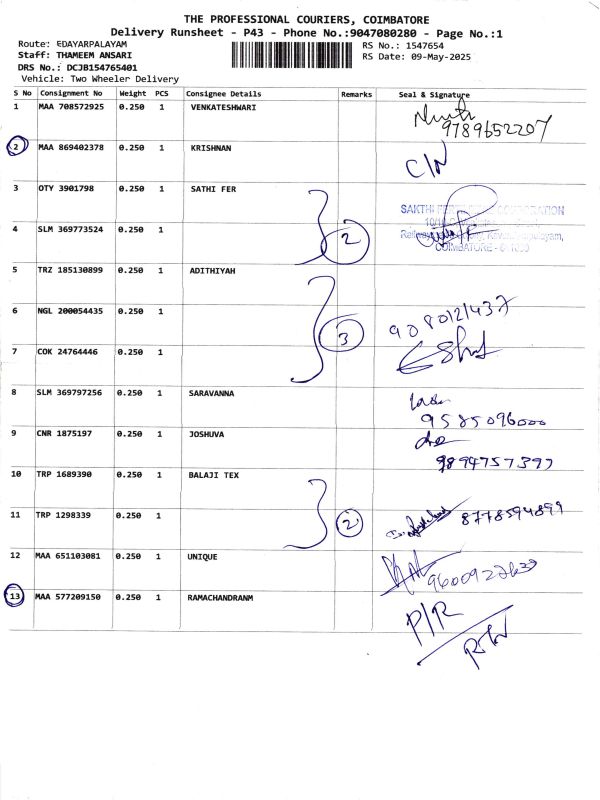 THE PROFESSIONAL COURIERS, COIMBATORE
Delivery Runsheet - P43 - Phone No.:9047080280 - Page No.:1
Route: EDAYARPALAYAM RS No.: 1547654
Staff: THAMEEM ANSARI RS Date: 09-May-2025
DRS No.: DCJB154765401
Vehicle: Two Wheeler Delivery
S No Consignment No Weight PCS Consignee Details Remarks Seal & Signature
1 MAA 708572925 0.250 1 VENKATESHWARI
9789652207
2 MAA 869402378 0.250 1 KRISHNAN C/N
3 OTY 3901798 0.250 1 SATHI FER
SAKTHI CORPORATION
4 SLM 369773524 0.250 1 2
COIMBATORE
5 TRZ 185130899 0.250 1 ADITHIYAH
6 NGL 200054435 0.250 1 9080121437
7 COK 24764446 0.250 1 3
8 SLM 369797256 0.250 1 SARAVANNA
9585096000
9 CNR 1875197 0.250 1 JOSHUVA
9894757397
10 TRP 1689390 0.250 1 BALAJI TEX
11 TRP 1298339 0.250 1 2 8778594899
12 MAA 651103081 0.250 1 UNIQUE
13 MAA 577209150 0.250 1 RAMACHANDRANM P/R